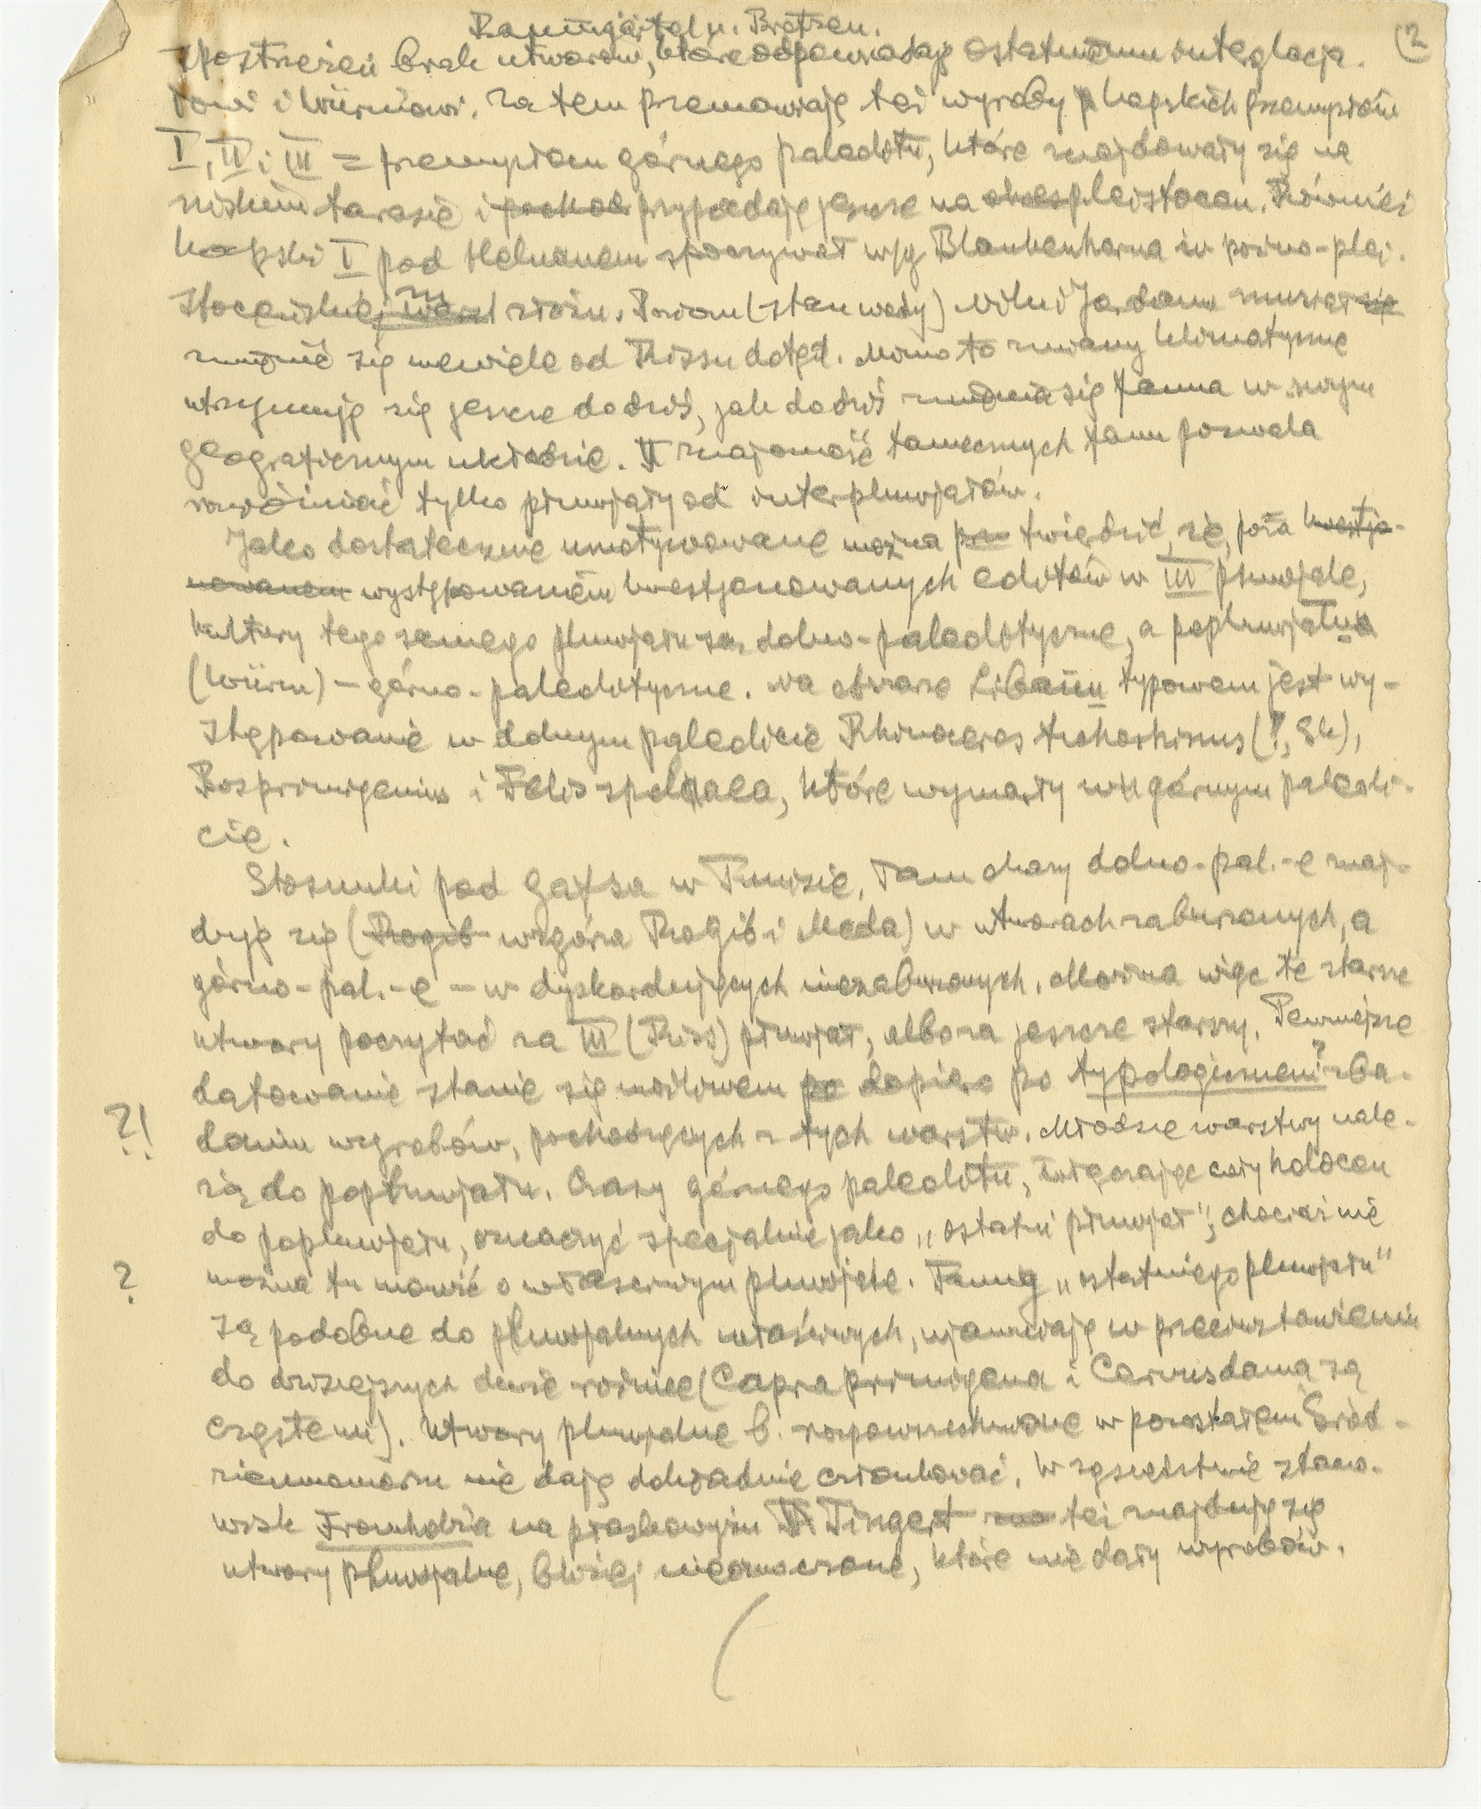 Baumgärtel u. Bretzen.
(2
spostrzeżeń brak utworów, które odpowiadają ostatniemu interglacja-
łowi i Würmowi. Za tem przemawiają też wyroby kapskich przemysłów
I, II i III = przemysłom górnego paleolitu, które znajdowały się na
niskiem tarasie i pochod przypadają jeszcze na okres plejstocen. Również
kapski I pod Heluanem spoczywał w/g Blankenhorna w poźno-plej-
stoceńskiej złożu. Poziom (stan wody) Nilu i Jordanu musiał się
zmienić się niewiele od Rissu dotąd. Mimo to zmiany klimatyczne
utrzymują się jeszcze do dziś, jak do dziś zmienia się fauna w swym
geograficznym układzie. Znajomość tamecznych faun pozwala
rozróżniać tylko pluwjały od interpluwjałów.
Jako dostatecznie umotywowane można twierdzić, że, poza kwestjo-
nowanem występowaniem kwestjonowanych eolitów w III pluwjale,
kultury tego samego pluwjału są dolno-paleolityczne, a popluwjalna
(Würm) – górno-paleolityczne. Na obszarze Libanu typowem jest wy-
stępowanie w dolnym paleolicie Rhinoceros tichorhinus (?, Sk),
Bos primigenius i Felis spelaea, które wymarły w górnym paleoli-
cie.
Stosunki pod Gafsa w Tunisie. Tam okazy dolno-pal.-e znaj-
dują się (Rogib wzgórza Rogib i Meda) w utworach zaburzonych, a
górno-pal.-e – w dyskordujących niezaburzonych. Można więc te starsze
utwory poczytać za III (Riss) pluwjał, albo za jeszcze starszy. Pewniejsze
datowanie stanie się możliwem po dopiero po typologicznem ? zba-
?! daniu wyrobów, pochodzących z tych warstw. Młodsze warstwy nale-
żą do popluwjału. Czasy górnego paleolitu, włączając cały holocen
do popluwjału, oznaczyć specjalnie jako „ostatni pluwjał", chociaż nie
? można tu mówić o właściwym pluwjale. Fauny „ostatniego pluwjału"
są podobne do pluwjalnych właściwych, ujawniają w przeciwstawieniu
do dzisiejszych duże różnice (Capra primigena i Cervus dama są
częstemi). Utwory pluwjalne b. rozpowszechnione w pozostałem Śród-
ziemnomorzu nie dają dokładnie członkować. W sąsiedztwie stano-
wisk Fromholza na płaskowyżu Tingert też znajdują się
utwory pluwjalne, bliżej nieoznaczone, które nie dały wyrobów.